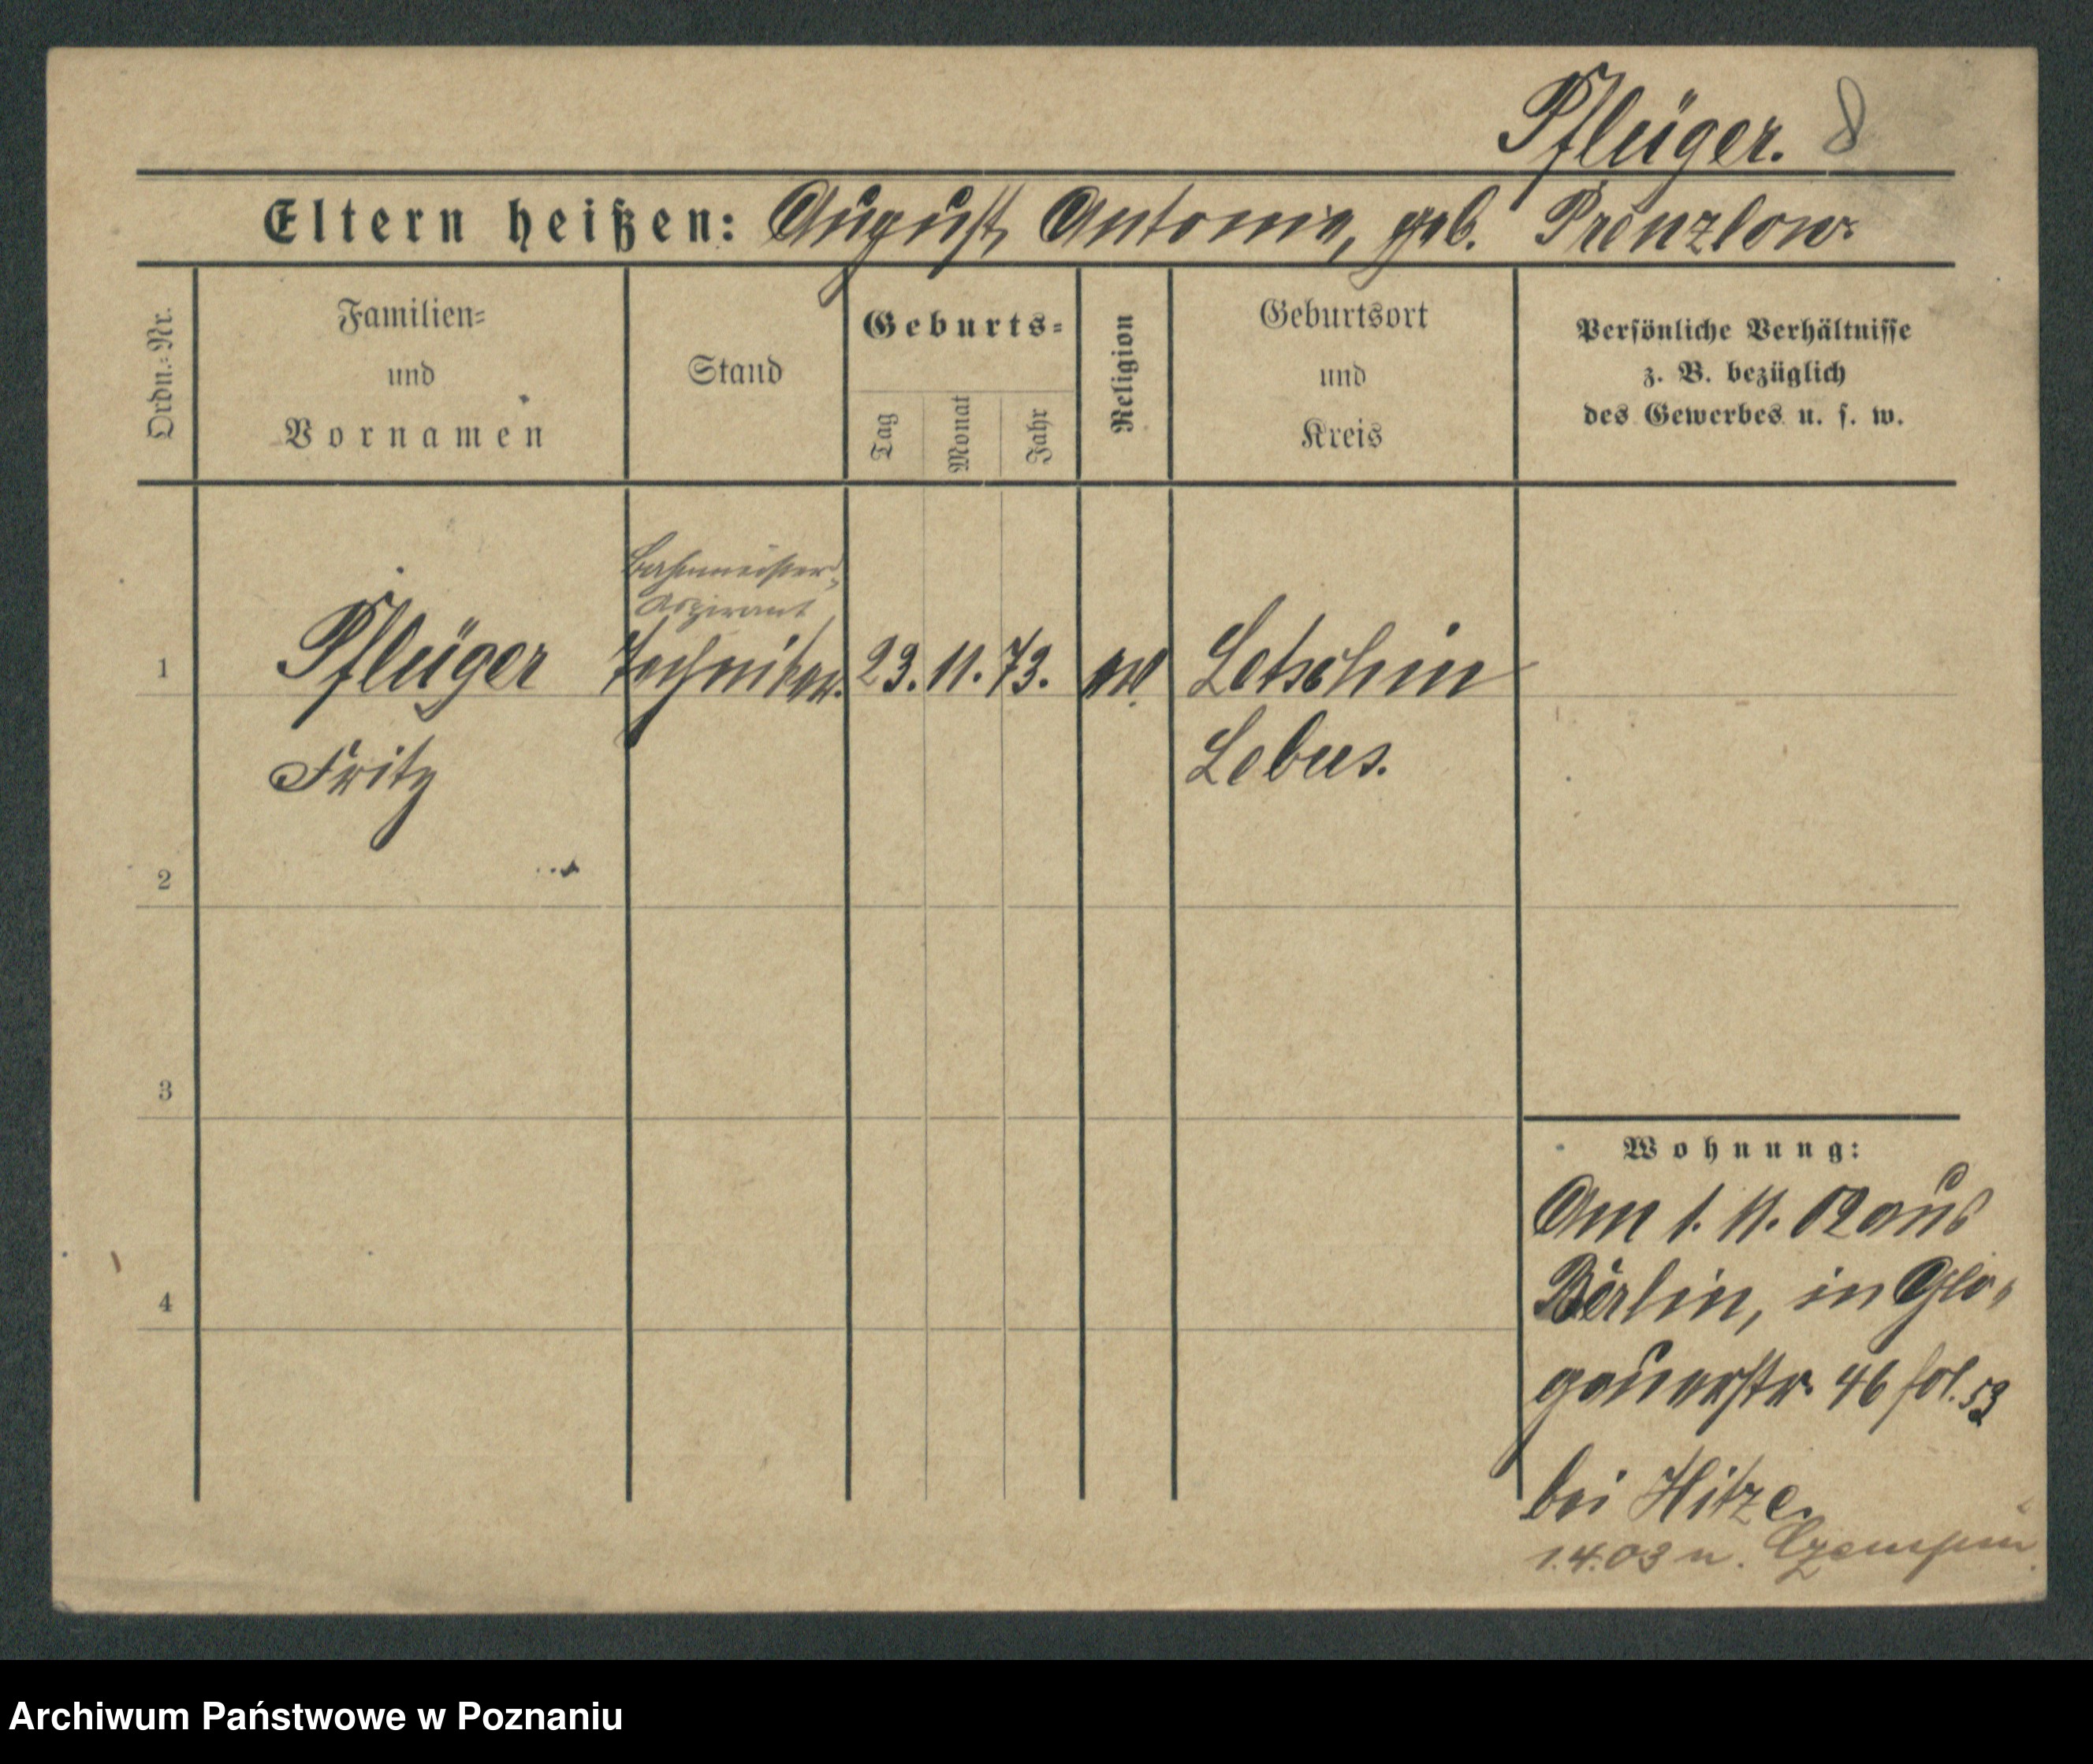 Pflüger. 8
Eltern heißen: August, Antonie, geb. Prenzlow
Ordn.-Nr.
Familien-
und
Vornamen
Stand
Geburts-
Tag
Monat
Jahr
Religion
Geburtsort
und
Kreis
Persönliche Verhältnisse
z. B. bezüglich
des Gewerbes u. s. w.
Bahnmeister-
Aspirant
1 Pflüger Techniker. 23. 11. 73. ev. Letschin
Fritz Lebus.
2
3
4
Wohnung:
Am 1. 11. 02 aus
Berlin, in Glo-
gauerstr. 46 fol. 53
bei Hitze.
1.4.03 n. Czempin.
Archiwum Państwowe w Poznaniu